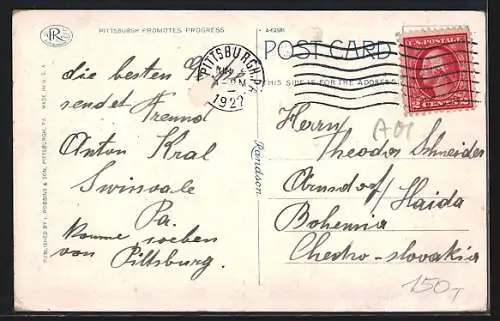 PITTSBURGH PROMOTES PROGRESS
POST CARD
THIS SIDE IS FOR THE ADDRESS
U.S. POSTAGE
2 CENTS 2
PITTSBURGH, PA.
1927
die besten
sendet Freund
Anton Kral
Swissvale
Pa.
komme soeben
von Pittsburg.
PUBLISHED BY I. ROBBINS & SON, PITTSBURGH, PA.
MADE IN U.S.A.
Randson
A01
Herrn
Theodor Schneider
Arnsdorf / Haida
Bohemia
Checho-slovakia
150